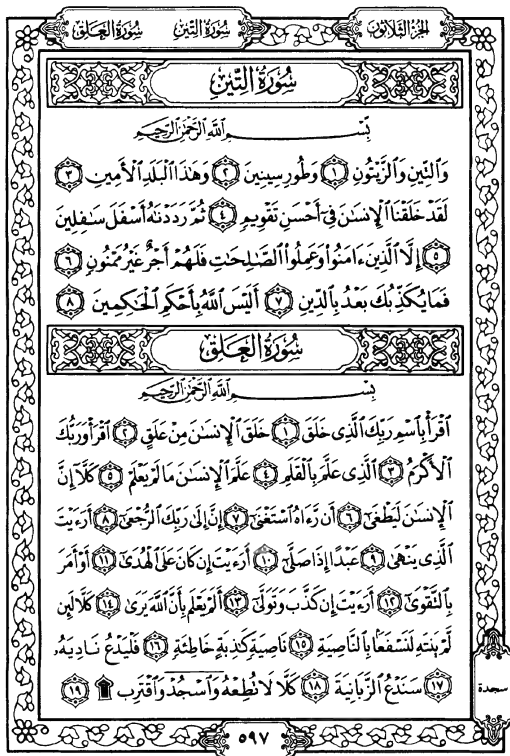 الجزء الثلاثون سورة التين سورة العلق
سُورَةُ التِّينِ
بِسْمِ اللَّهِ الرَّحْمَٰنِ الرَّحِيمِ
وَالتِّينِ وَالزَّيْتُونِ ١ وَطُورِ سِينِينَ ٢ وَهَٰذَا الْبَلَدِ الْأَمِينِ ٣
لَقَدْ خَلَقْنَا الْإِنسَٰنَ فِي أَحْسَنِ تَقْوِيمٍ ٤ ثُمَّ رَدَدْنَٰهُ أَسْفَلَ سَٰفِلِينَ
٥ إِلَّا الَّذِينَ ءَامَنُوا وَعَمِلُوا الصَّٰلِحَٰتِ فَلَهُمْ أَجْرٌ غَيْرُ مَمْنُونٍ ٦
فَمَا يُكَذِّبُكَ بَعْدُ بِالدِّينِ ٧ أَلَيْسَ اللَّهُ بِأَحْكَمِ الْحَٰكِمِينَ ٨
سُورَةُ العَلَقِ
بِسْمِ اللَّهِ الرَّحْمَٰنِ الرَّحِيمِ
اقْرَأْ بِاسْمِ رَبِّكَ الَّذِي خَلَقَ ١ خَلَقَ الْإِنسَٰنَ مِنْ عَلَقٍ ٢ اقْرَأْ وَرَبُّكَ
الْأَكْرَمُ ٣ الَّذِي عَلَّمَ بِالْقَلَمِ ٤ عَلَّمَ الْإِنسَٰنَ مَا لَمْ يَعْلَمْ ٥ كَلَّا إِنَّ
الْإِنسَٰنَ لَيَطْغَىٰ ٦ أَن رَّءَاهُ اسْتَغْنَىٰ ٧ إِنَّ إِلَىٰ رَبِّكَ الرُّجْعَىٰ ٨ أَرَءَيْتَ
الَّذِي يَنْهَىٰ ٩ عَبْدًا إِذَا صَلَّىٰ ١٠ أَرَءَيْتَ إِن كَانَ عَلَى الْهُدَىٰ ١١ أَوْ أَمَرَ
بِالتَّقْوَىٰ ١٢ أَرَءَيْتَ إِن كَذَّبَ وَتَوَلَّىٰ ١٣ أَلَمْ يَعْلَم بِأَنَّ اللَّهَ يَرَىٰ ١٤ كَلَّا لَئِن
لَّمْ يَنتَهِ لَنَسْفَعًا بِالنَّاصِيَةِ ١٥ نَاصِيَةٍ كَٰذِبَةٍ خَاطِئَةٍ ١٦ فَلْيَدْعُ نَادِيَهُۥ
١٧ سَنَدْعُ الزَّبَانِيَةَ ١٨ كَلَّا لَا تُطِعْهُ وَاسْجُدْ وَاقْتَرِب ۩ ١٩
سجدة
٥٩٧